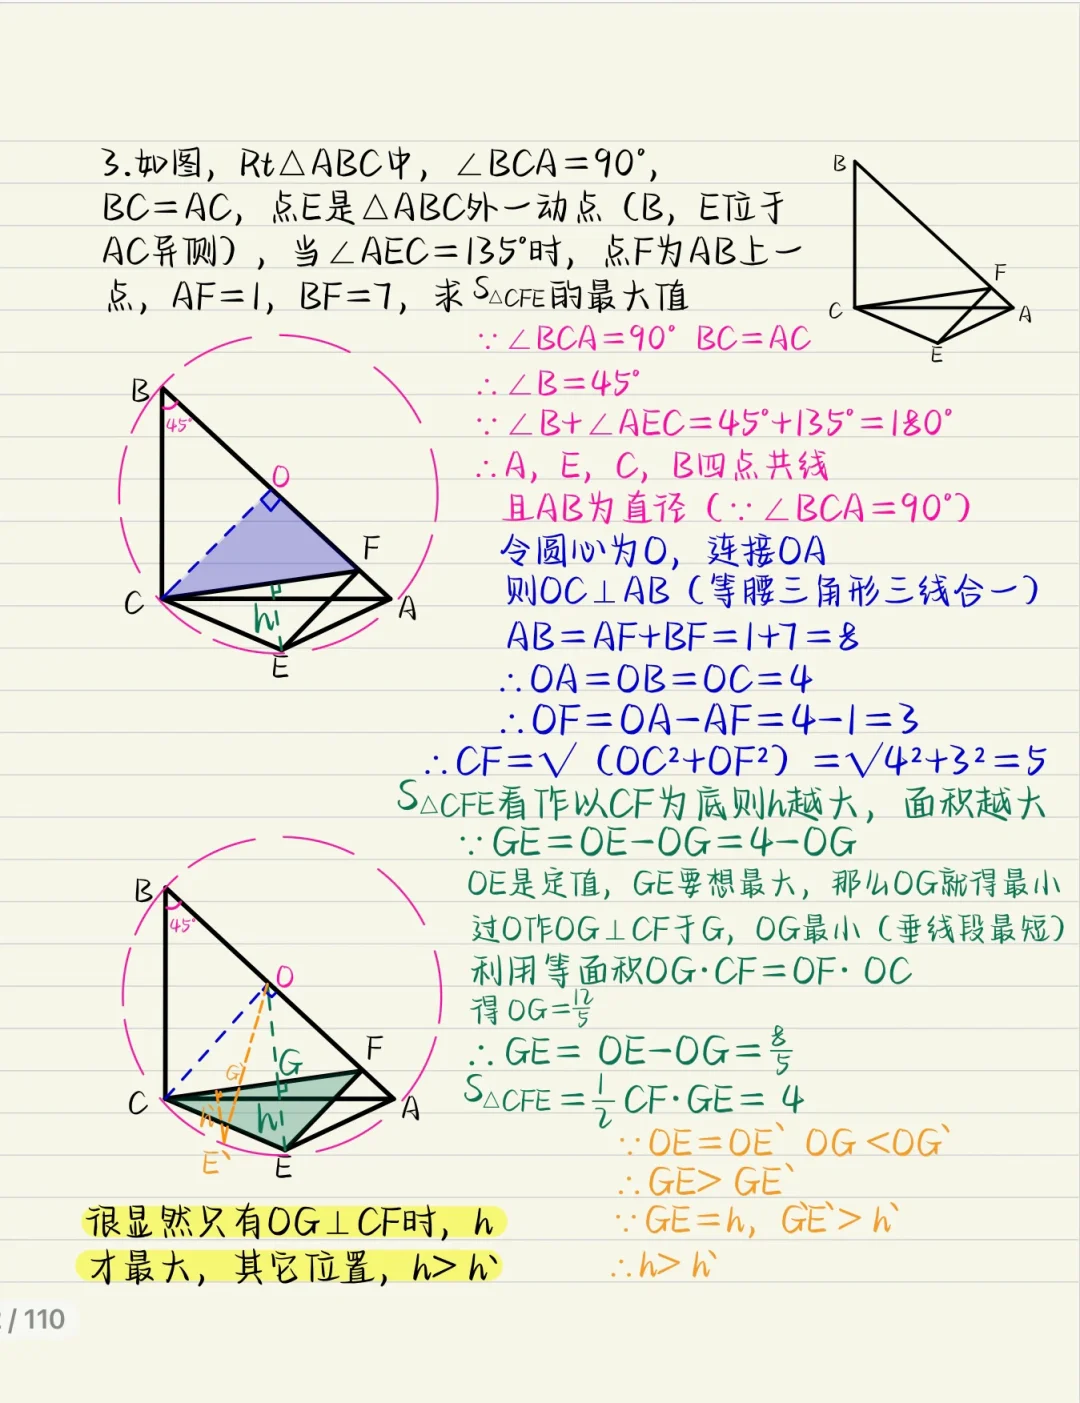 3.如图，Rt△ABC中，∠BCA=90°，
BC=AC，点E是△ABC外一动点（B，E位于
AC异侧），当∠AEC=135°时，点F为AB上一
点，AF=1，BF=7，求S△CFE的最大值
B
F
C
A
E
∵∠BCA=90° BC=AC
∴∠B=45°
∵∠B+∠AEC=45°+135°=180°
∴A，E，C，B四点共线
且AB为直径（∵∠BCA=90°）
令圆心为O，连接OA
则OC⊥AB（等腰三角形三线合一）
AB=AF+BF=1+7=8
∴OA=OB=OC=4
∴OF=OA-AF=4-1=3
∴CF=√（OC²+OF²）=√4²+3²=5
B
45°
O
F
C
h
A
E
S△CFE看作以CF为底则h越大，面积越大
∵GE=OE-OG=4-OG
OE是定值，GE要想最大，那么OG就得最小
过O作OG⊥CF于G，OG最小（垂线段最短）
利用等面积OG·CF=OF·OC
得OG=12/5
∴GE=OE-OG=8/5
S△CFE=1/2CF·GE=4
B
45°
O
F
G
G`
C
h`
h
A
E`
E
∵OE=OE` OG<OG`
∴GE>GE`
∵GE=h，G`E`>h`
∴h>h`
很显然只有OG⊥CF时，h
才最大，其它位置，h>h`
/ 110